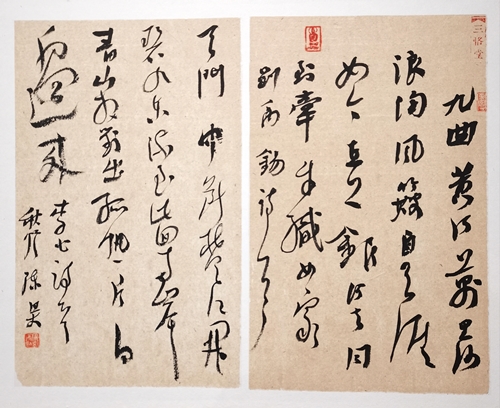 九曲黄河万里沙
浪淘风簸自天涯
如今直上银河去同
到牵牛织女家
刘禹锡诗一首
天門中断楚江開
碧水东流至此回两岸
青山相对出孤帆一片日
邊来
李白诗一首